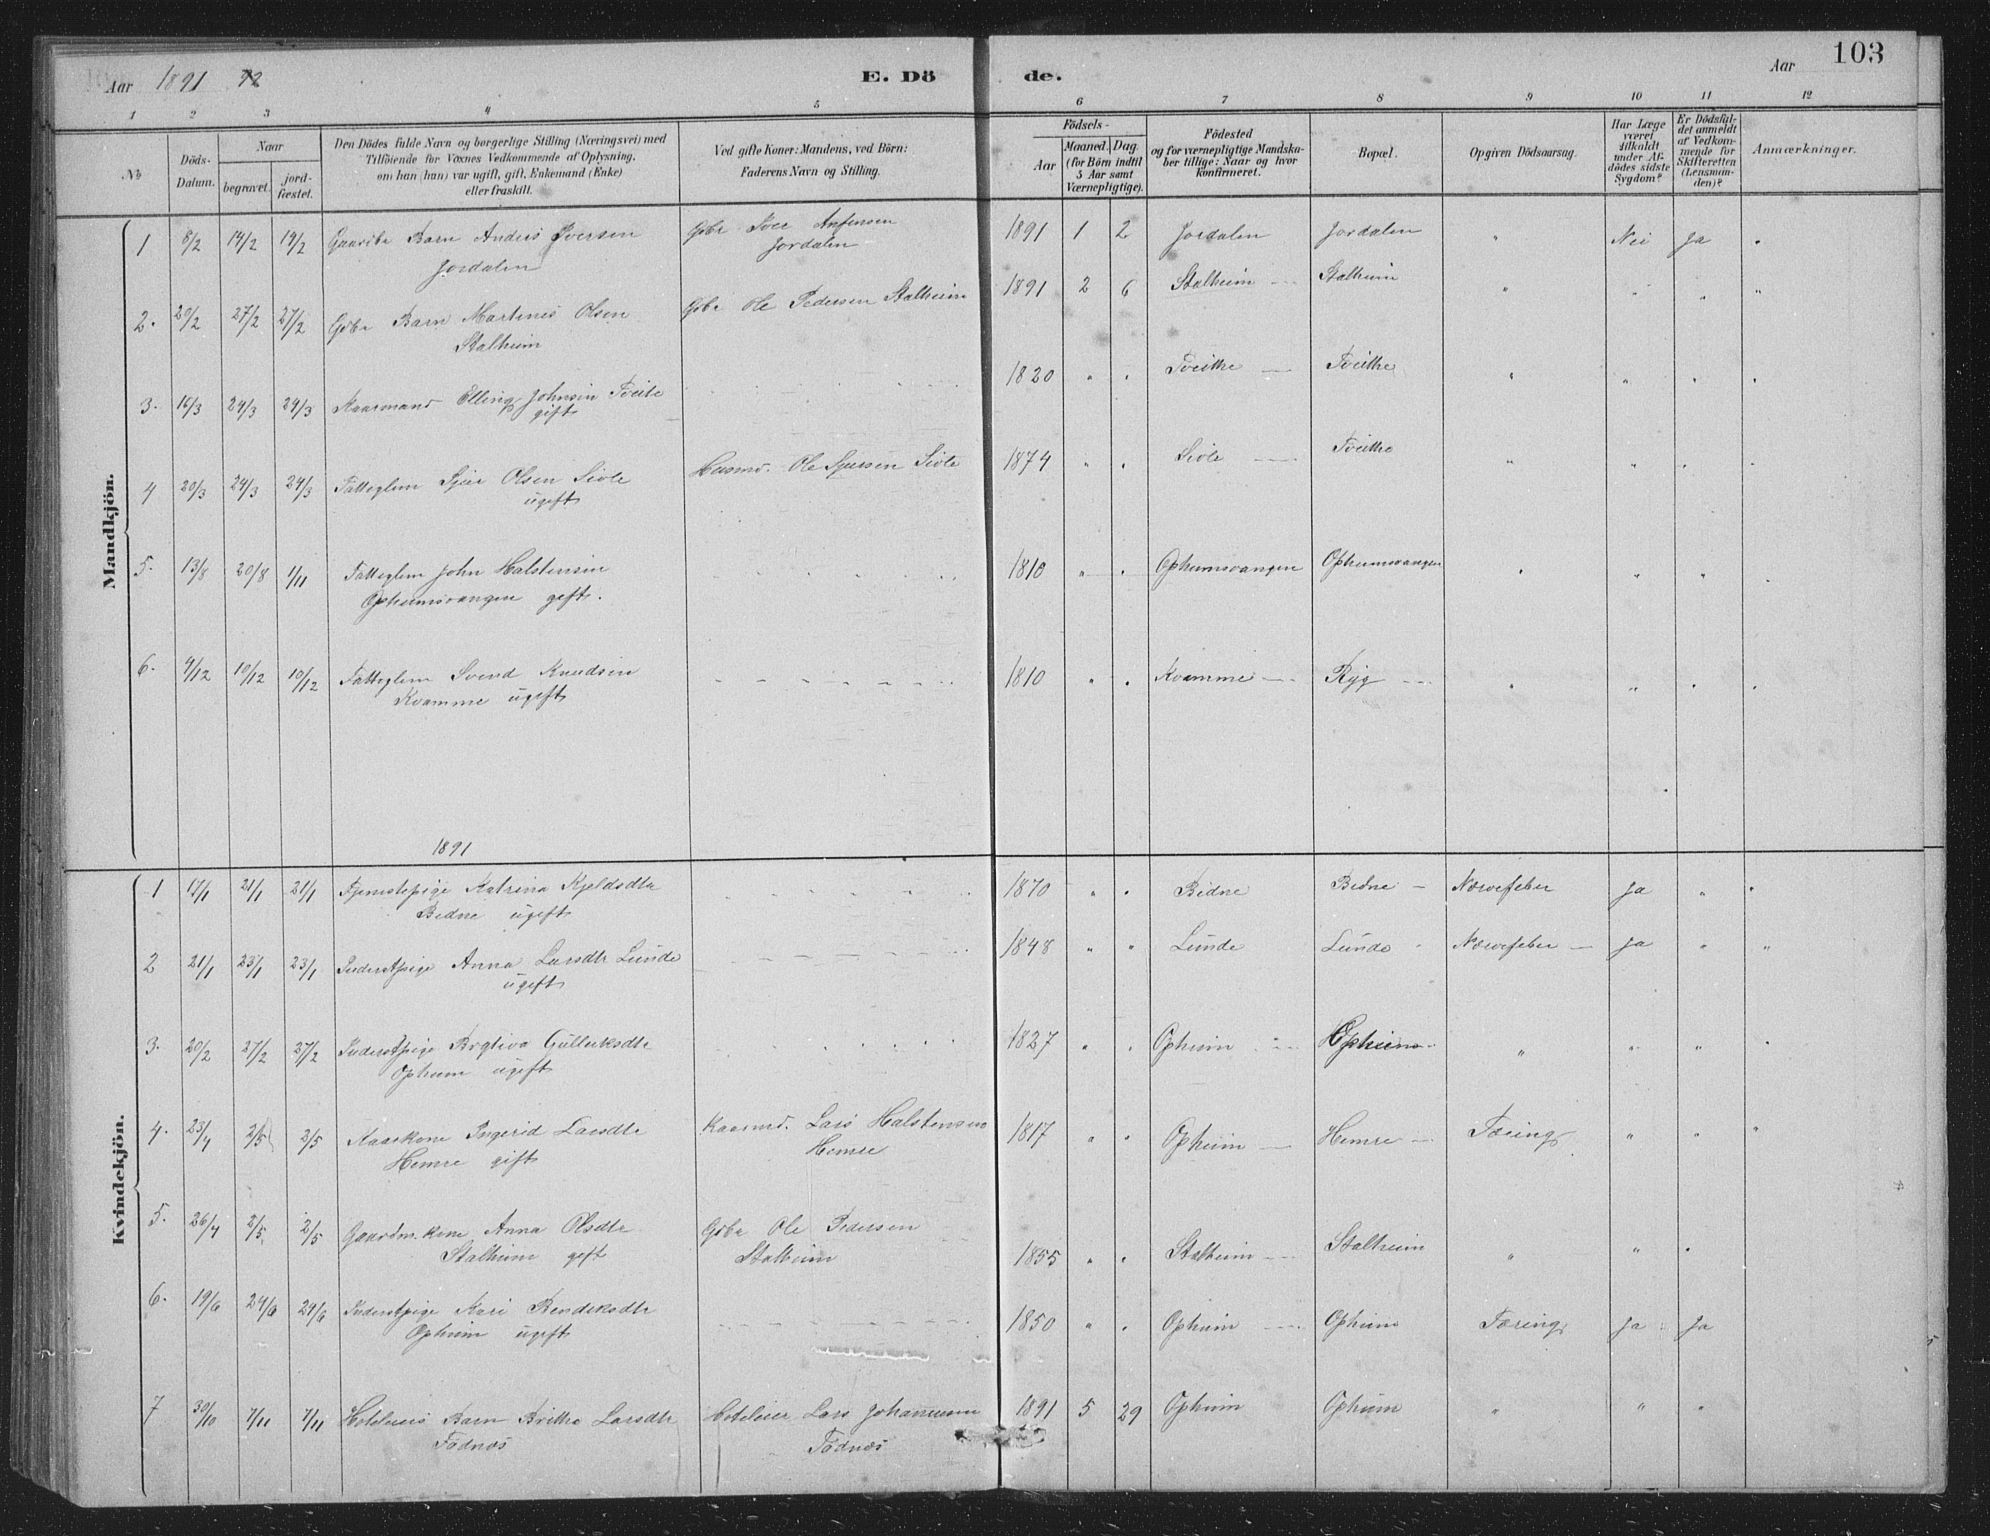 103
Aar 1891 92 E. Döde. Aar
1 2 3 4 5 6 7 8 9 10 11 12
№
Döds-Datum.
Naar
begravet.
jordfæstet.
Den Dödes fulde Navn og borgerlige Stilling (Næringsvei) med
Tilföiende for Voxnes Vedkommende af Oplysning,
om han (hun) var ugift, gift, Enkemand (Enke)
eller fraskilt.
Ved gifte Koner: Mandens, ved Börn:
Faderens Navn og Stilling.
Födsels-
Aar
Maaned. Dag
(for Börn indtil
5 Aar samt
Værnepligtige).
Födested
og for værnepligtige Mandska-
ber tillige: Naar og hvor
konfirmeret.
Bopæl.
Opgiven Dödsaarsag.
Har Læge
været
tilkaldt
under Af-
dödes sidste
Sygdom?
Er Dödsfal-
det anmeldt
af Vedkom-
mende for
Skifteretten
(Lensman-
den)?
Anmærkninger.
Mandkjön.
1 8/2 14/2 14/2 Gaardbr Barn Anders Iversen Gbr Iver Anfensen 1891 1 2 Jordalen Jordalen " Nei Ja "
Jordalen Jordalen
2. 20/2 27/2 27/2 Gbr Barn Martinus Olsen Gbr Ole Pedersen Stalheim 1891 2 6 Stalheim Stalheim " " " "
Stalheim
3. 16/3 24/3 24/3 Kaarmand Elling Johnsen Tveite 1820 " " Tveithe Tveithe " " " "
gift
4 20/3 24/3 24/3 Fattiglem Sjur Olsen Sivle Husmd. Ole Sjursen Sivle 1874 " " Sivle Tveithe " " " "
ugift
5. 13/8 20/8 1/11 Fattiglem John Halstensen 1810 " " Opheimsvangen Opheimsvangen " " " "
Opheimsvangen gift.
6. 4/12 10/12 10/12 Fattiglem Svend Knudsen 1810 " " Kvamme Ryg " " " "
Kvamme ugift
1891
Kvindekjön.
1 17/1 21/1 21/1 Tjenestepige Katrina Kjeldsdtr 1870 " " Bidne Bidne Nervefeber Ja " "
Bidne ugift
2 21/1 23/1 23/1 Inderstpige Anna Larsdtr Lunde 1848 " " Lunde Lunde Nervefeber Ja " "
ugift
3. 20/2 27/2 27/2 Inderstpige Brytteva Gulleiksdtr 1827 " " Opheim Opheim " " " "
Opheim ugift
4. 23/4 2/5 2/5 Kaarkone Ingerid Larsdtr Kaarmd. Lars Halstensen 1817 " " Opheim Hemre Tæring " " "
Hemre gift Hemre
5. 26/4 2/5 2/5 Gaardm.kone Anna Olsdtr Gbr Ole Pedersen 1855 " " Stalheim Stalheim " " "
Stalheim gift Stalheim
6. 19/6 24/6 24/6 Inderstpige Kari Bendiksdtr 1850 " " Opheim Opheim Tæring Ja Ja
Opheim ugift
7 30/10 7/11 7/11 Hoteleiers Barn Brithe Larsdtr Hoteleier Lars Johannesen 1891 5 29 Opheim Opheim " " "
Födnæs Födnæs